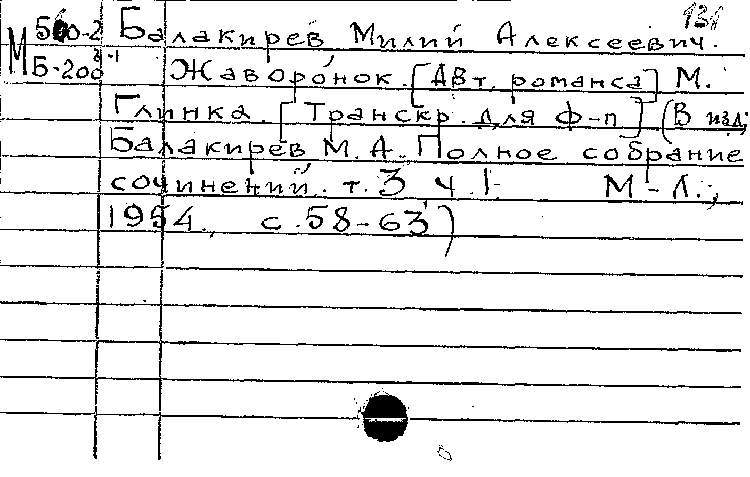 131
М 560-2 Балакирев Милий Алексеевич.
Б-200 3-1 Жаворонок. [Авт. романса] М.
Глинка. [Транскр. для ф-п] (В изд;
Балакирев М. А. Полное собрание
сочинений. т. 3 ч. 1. М-Л.;
1954., с. 58-63)